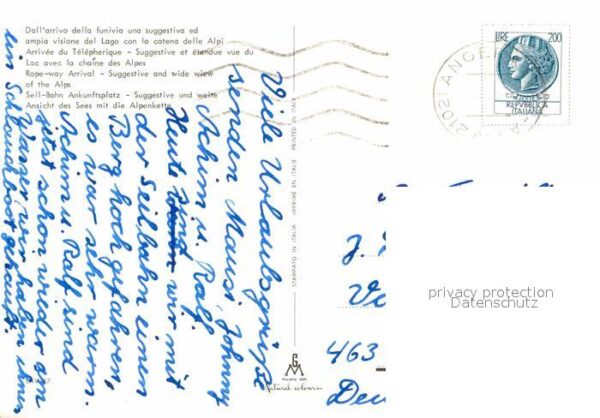 Dall'arrivo della funivia una suggestiva ed
ampia visione del Lago con la catena delle Alpi
Arrivée du Télépherique - Suggestive et étendue vue du
Lac avec la chaîne des Alpes
Rope-way Arrival - Suggestive and wide view
of the Alps
Seil-Bahn Ankunftsplatz - Suggestive und weite
Ansicht des Sees mit die Alpenkette
Viele Urlaubsgrüße
senden Mausi, Johnny
Achim u. Ralf.
Heute sind wir mit
der Seilbahn einen
Berg hochgefahren,
es war sehr warm.
Achim u. Ralf sind
jetzt schon wieder am
Wasser, wir haben ihnen
ein Schlauchboot gekauft.
STAMPATO IN ITALIA IMPRIMÉ EN ITALIE PRINTED IN ITALY
GM
natural colours
LIRE 200
REPVBBLICA
ITALIANA
21021 ANGE
J.
463
Deu
privacy protection
Datenschutz